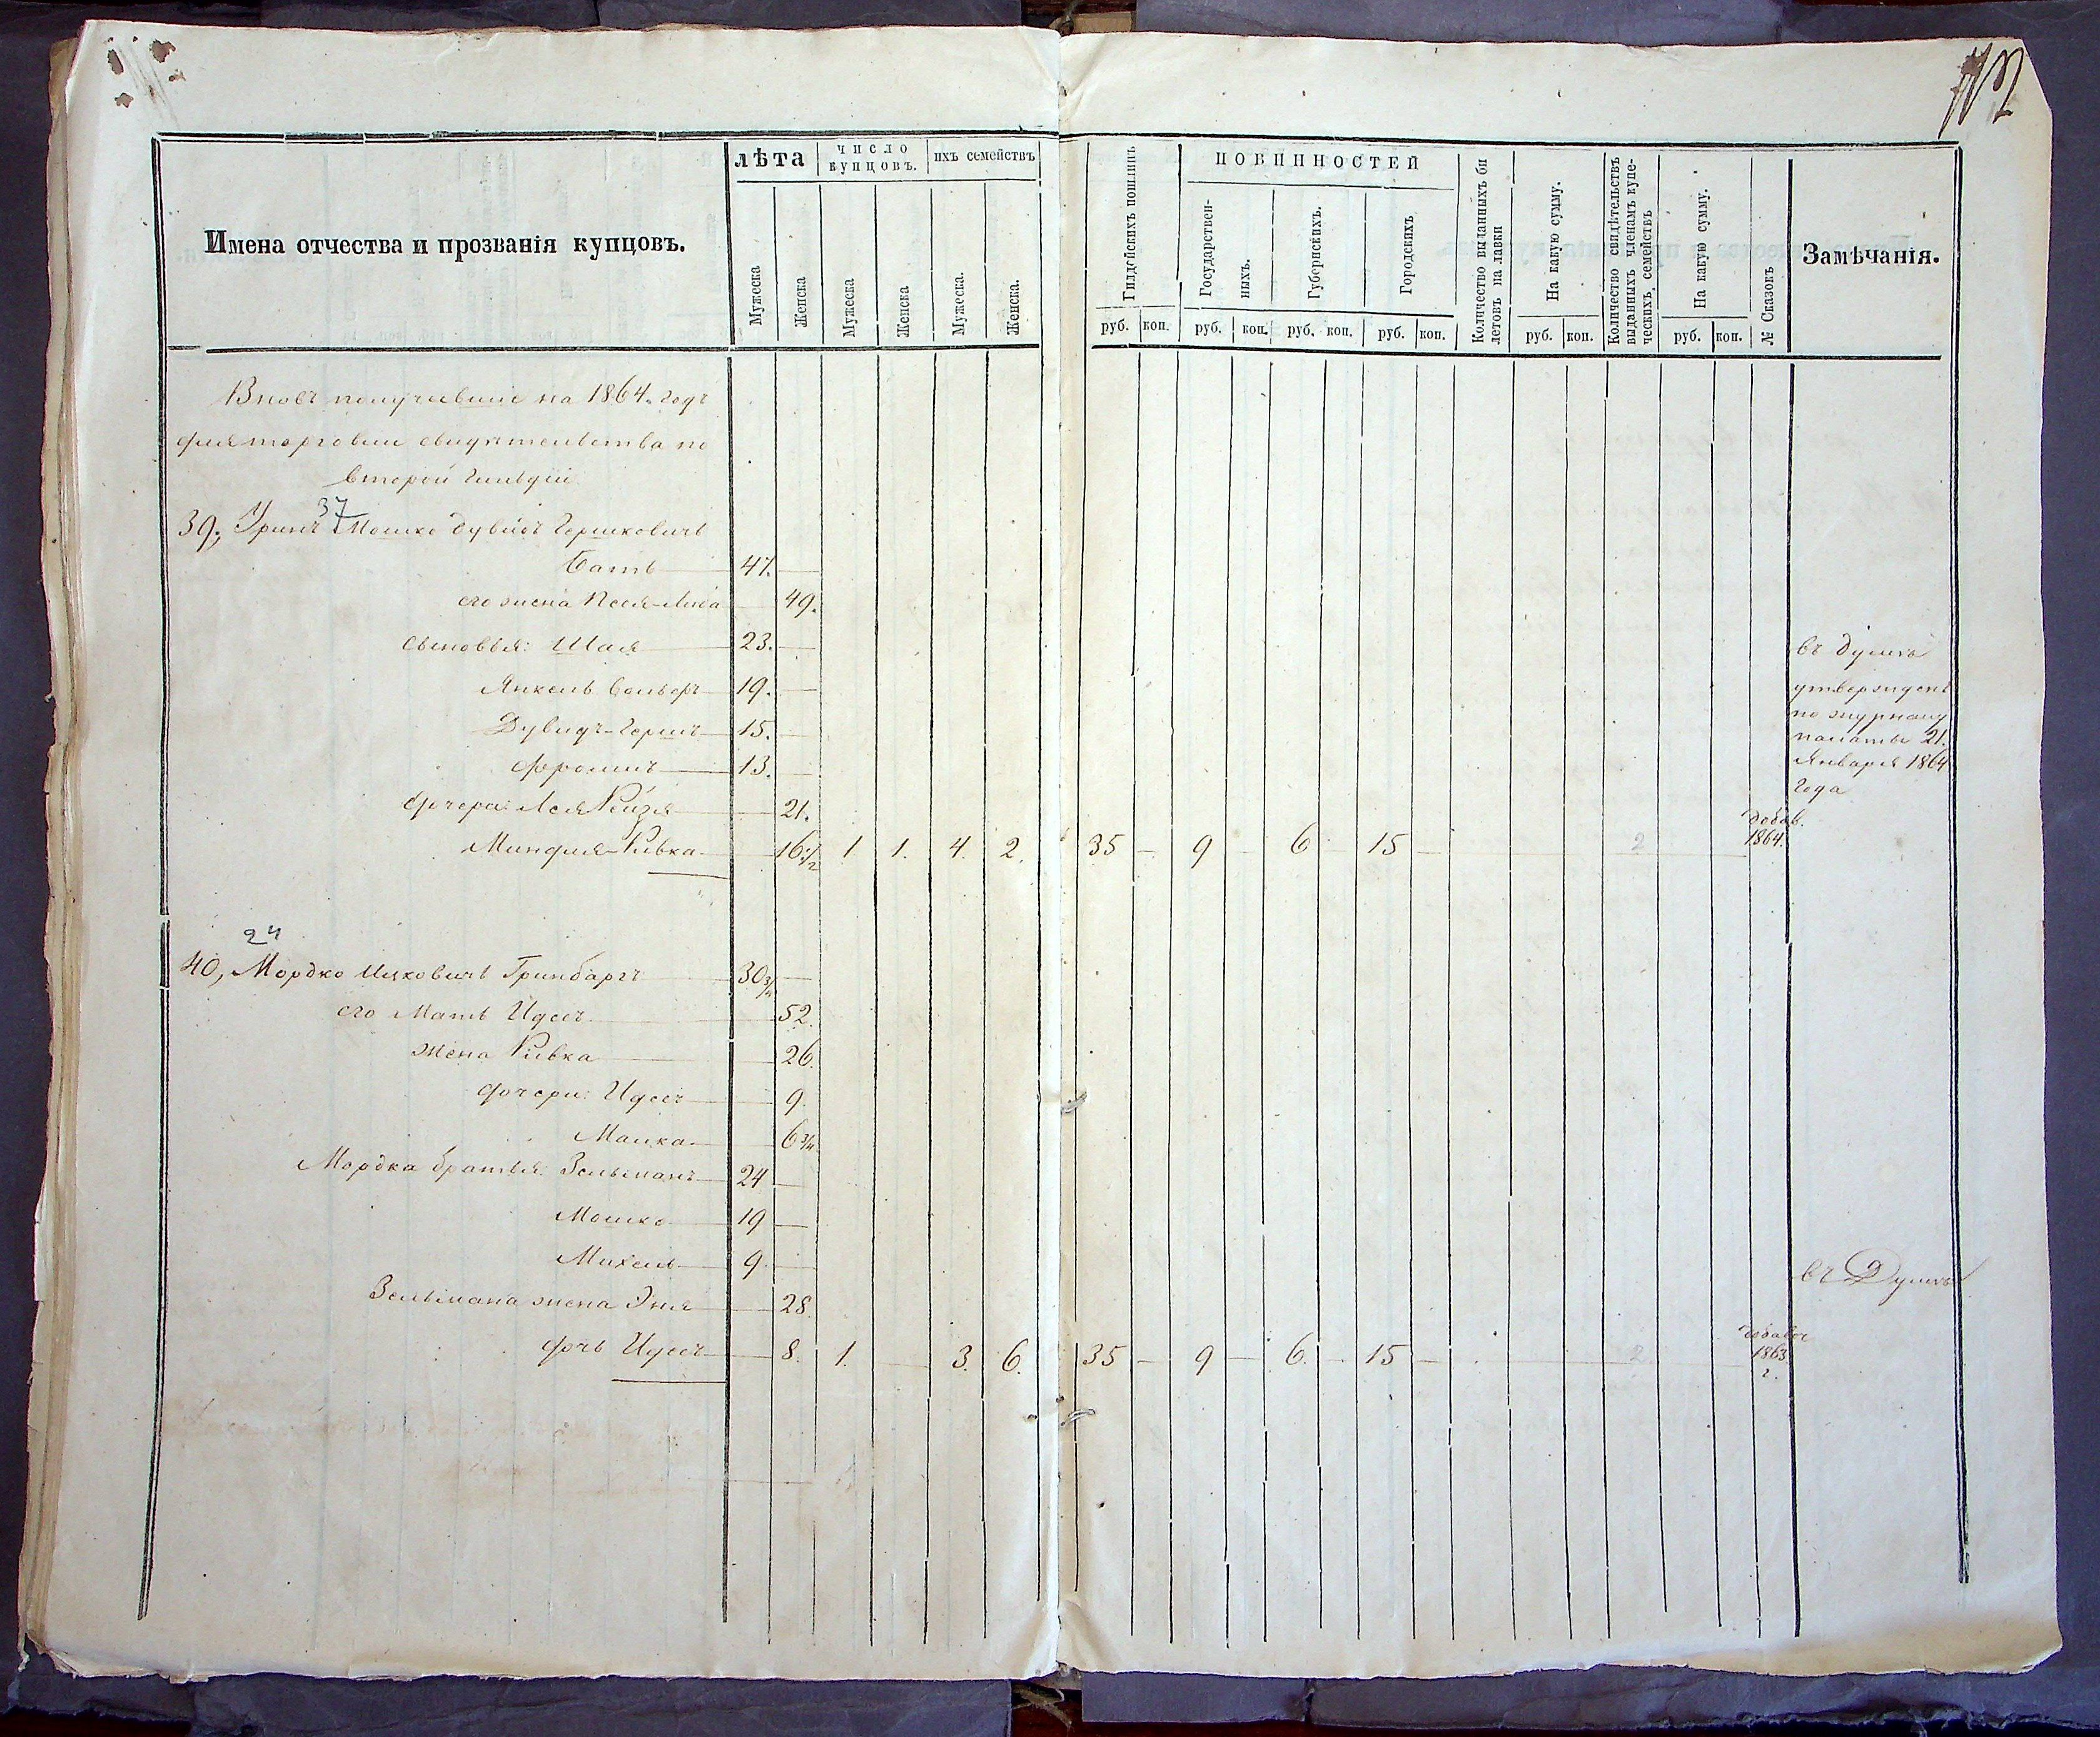 Имена отчества и прозванія купцовъ.
лѣта
число купцовъ.
ихъ семействъ
Мужеска
Женска
Мужеска
Женска
Мужеска.
Женска.
Гилдейскихъ пошлинъ
ПОВИННОСТЕЙ
Государствен-
ныхъ.
Губернскихъ.
Городскихъ
Количество выданныхъ би
летовъ на лавки
На какую сумму.
Количество свидѣтельствъ
выданныхъ членамъ купе-
ческихъ семействъ
На какую сумму.
№ Сказокъ
Замѣчанія.
руб. коп. руб. коп. руб. коп. руб. коп. руб. коп. руб. коп.
Вновь получившіе на 1864. годъ
для торговли свидѣтельства по
второй гильдіи
37
39, Гринъ Мошко Дувидъ Гершковичъ
47.
его жена Песя-Либа 49.
сыновья: Шая 23.
Янкель Вольфъ 19.
Дувидъ-Гершъ 15.
Фроимъ 13.
въ Думѣ
утвержденъ
по журналу
палаты 21.
Января 1864
года
дочери: Лея Рейзя 21.
Миндля-Ривка 16 1/2 1 1. 4. 2. 35 9 6 15 2 добав. 1864.
24
40, Мордко Ицковичъ Гринбаргъ 30 3/4
его Мать Идесъ 52.
жена Ривка 26.
дочери: Идесъ 9.
Малка 6 3/4
Мордка братья: Зельманъ 24
Мошко 19
Михель 9
въ Думѣ
Зельмана жена Эня 28
дочь Идесъ 8. 1. 3. 6. 35 9 6. 15 2 добавоч 1863 г.